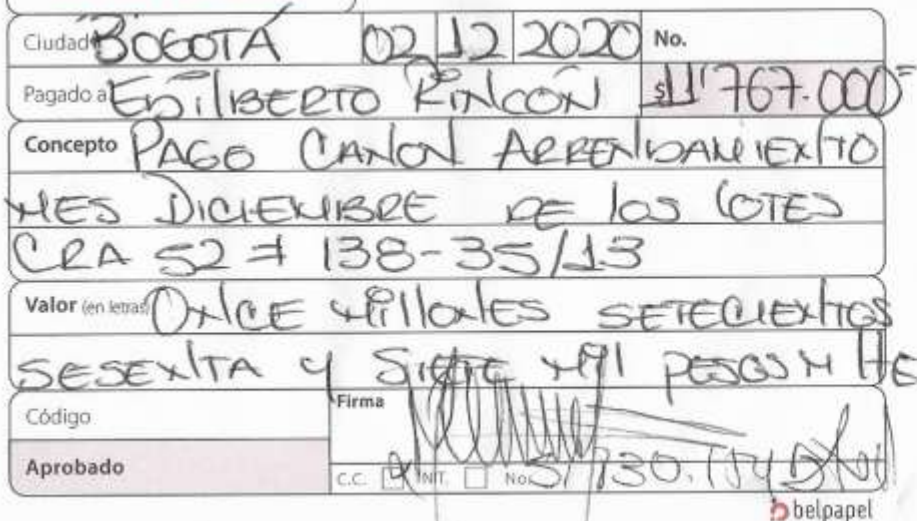 Ciudad BOGOTÁ 02 12 2020 No.
Pagado a EDILBERTO RINCÓN $11'767.000=
Concepto PAGO CANON ARRENDAMIENTO
MES DICIEMBRE DE los LOTES
CRA 52 # 138-35/13
Valor (en letras) ONCE Millones SETECIENTOS
SESENTA y SIETE Mil PESOS M/TE
Código
Firma
Aprobado
C.C. NIT. No.
belpapel